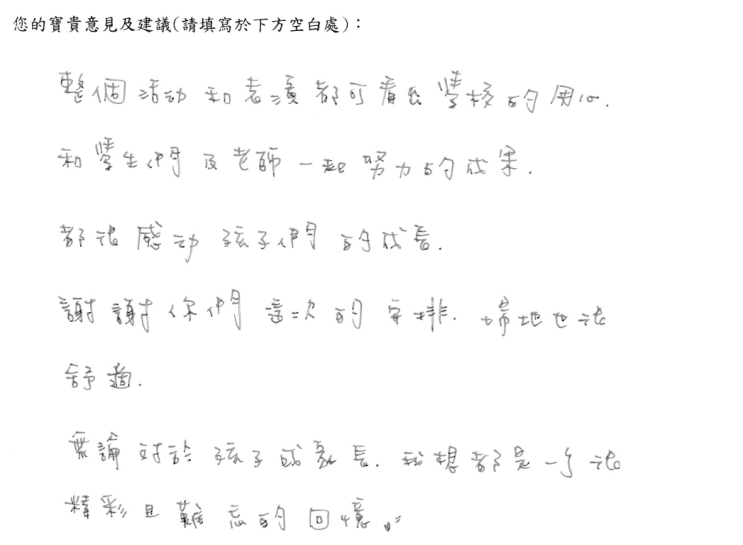 您的寶貴意見及建議(請填寫於下方空白處)：
整個活動和表演都可看出學校的用心.
和學生們及老師一起努力的成果.
都很感動孩子們的成長.
謝謝你們這次的安排. 場地也很
舒適.
無論對於孩子或家長. 我想都是一个很
精彩且難忘的回憶。